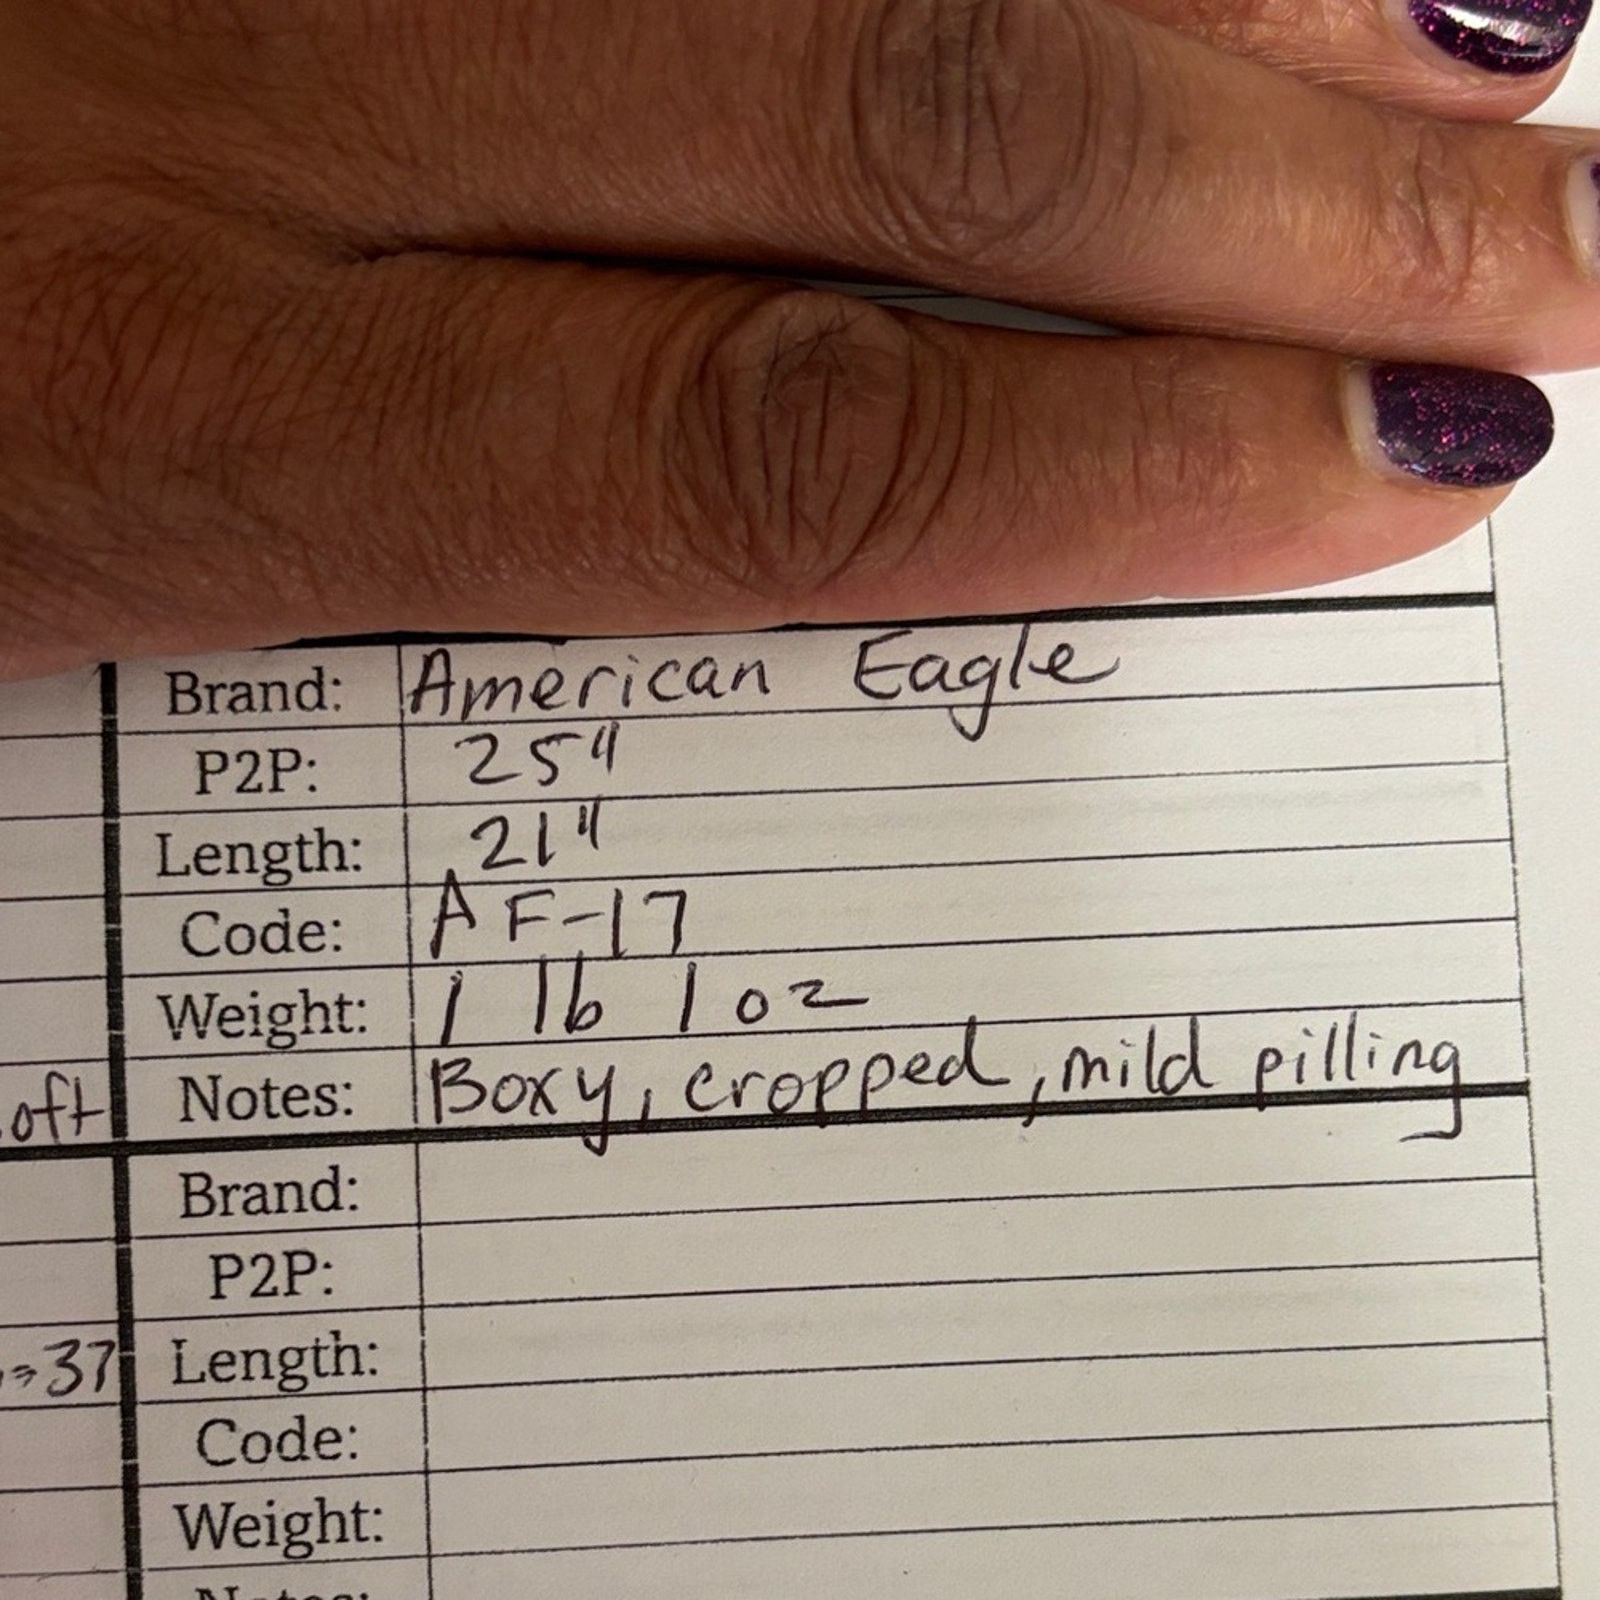 Brand: American Eagle
P2P: 25"
Length: 21"
Code: AF-17
Weight: 1 lb 1 oz
oft Notes: Boxy, cropped, mild pilling
Brand:
P2P:
=37 Length:
Code:
Weight:
Notes: